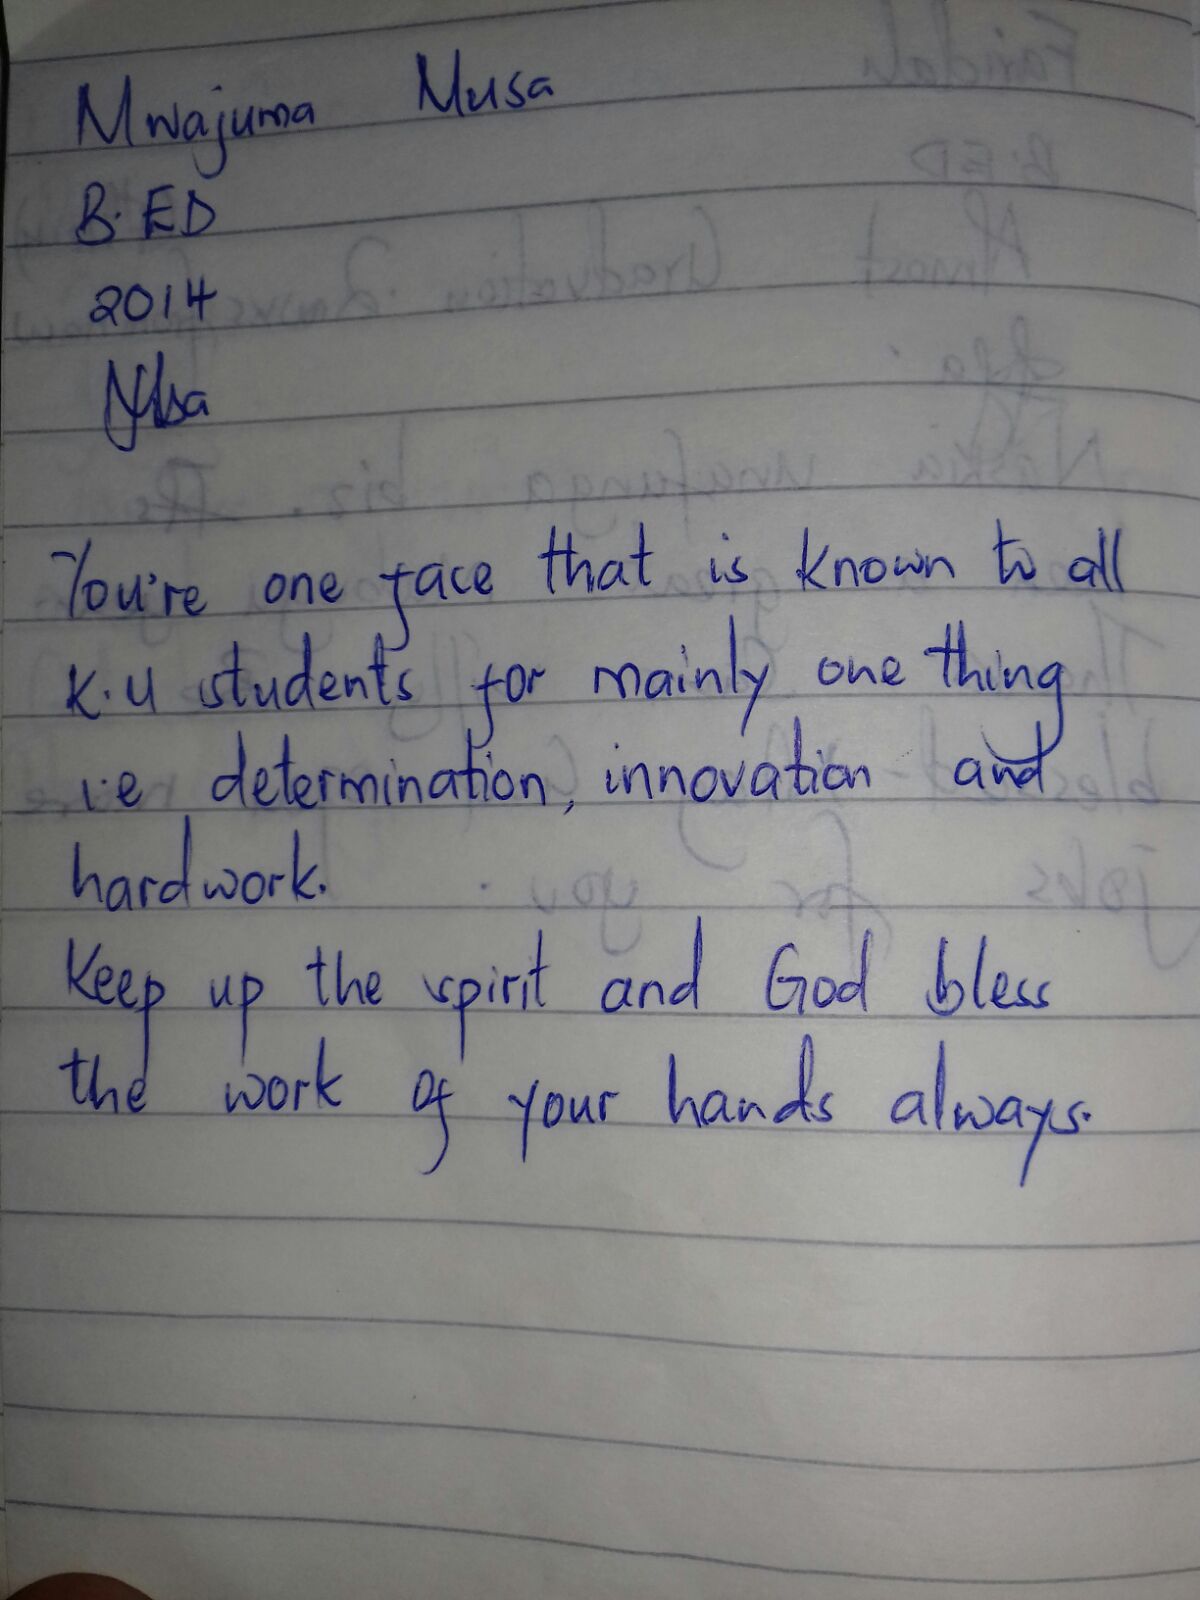 Mwajuma Musa
B.ED
2014
You're one face that is known to all
K.U students for mainly one thing
i.e determination, innovation and
hardwork.
Keep up the spirit and God bless
the work of your hands always.